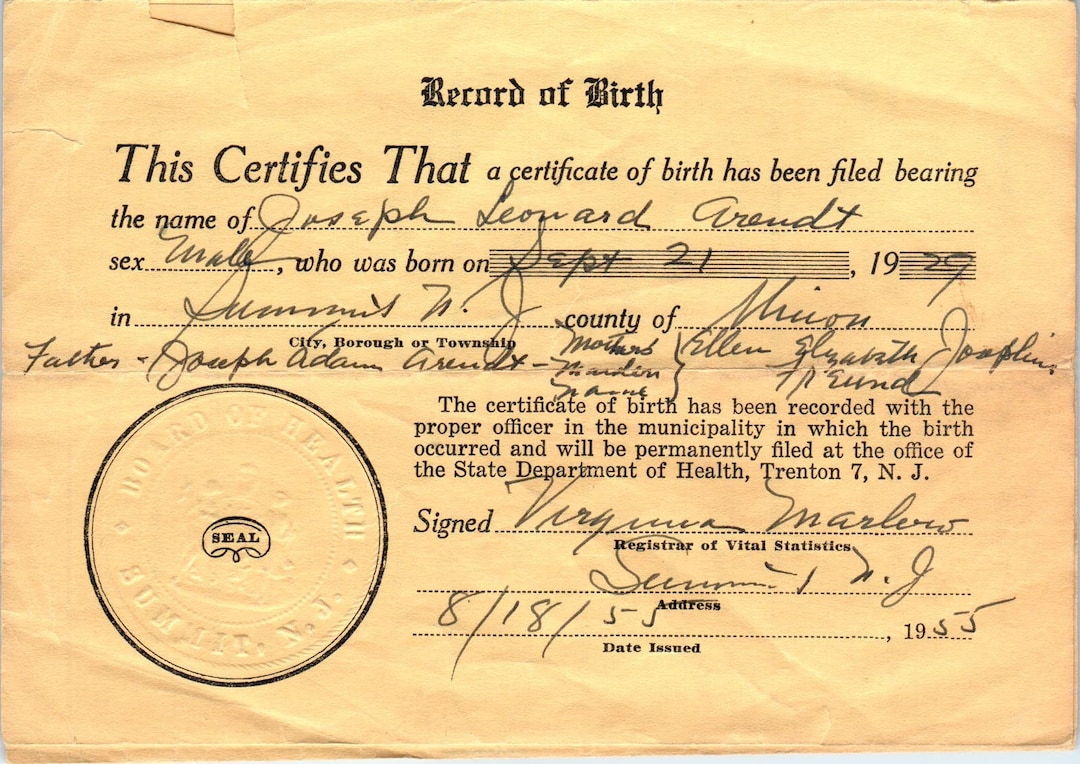 Record of Birth
This Certifies That a certificate of birth has been filed bearing
the name of Joseph Leonard Arendt
sex Male, who was born on Sept 21, 1929
in Summit N. J county of Union
City, Borough or Township
Father - Joseph Adam Arendt - Mothers Maiden Name } Ellen Elzabeth Josephine Freund
The certificate of birth has been recorded with the
proper officer in the municipality in which the birth
occurred and will be permanently filed at the office of
the State Department of Health, Trenton 7, N. J.
BOARD OF HEALTH
SEAL
SUMMIT, N. J.
Signed Virginia Marlow
Registrar of Vital Statistics
Summit N. J
Address
8/18/55, 1955
Date Issued